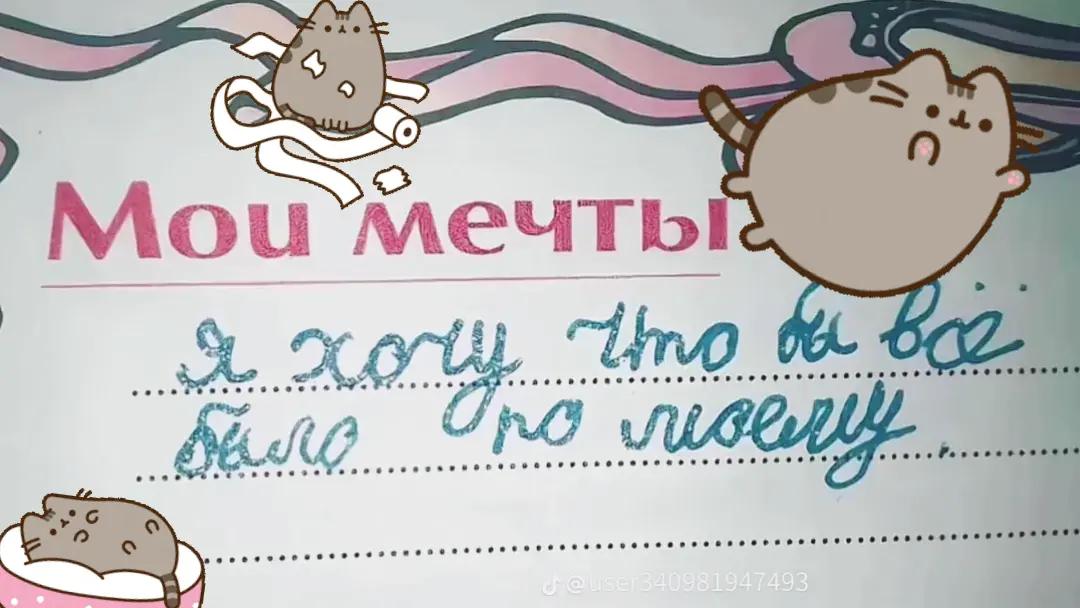 Мои мечты
я хочу что бы всё
было по моему.
@user340981947493